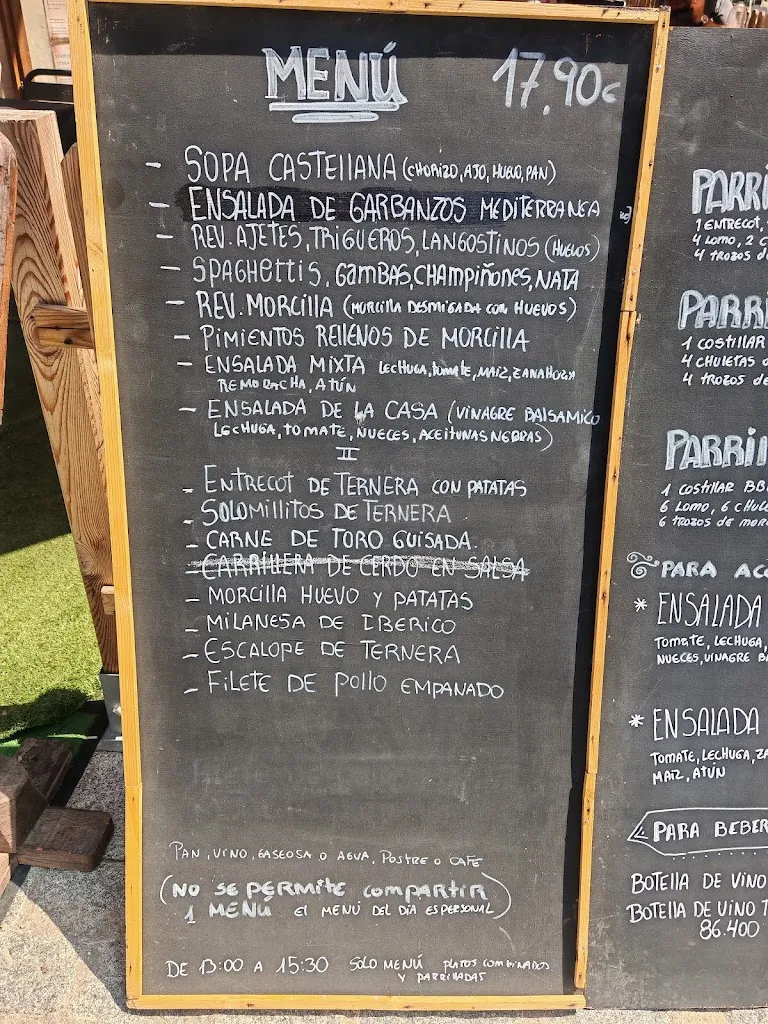 MENÚ 17,90€
- SOPA CASTELLANA (CHORIZO, AJO, HUEVO, PAN)
- ENSALADA DE GARBANZOS MEDITERRANEA
- REV. AJETES, TRIGUEROS, LANGOSTINOS (HUEVOS)
- SPAGHETTIS, GAMBAS, CHAMPIÑONES, NATA
- REV. MORCILLA (MORCILLA DESMIGADA CON HUEVOS)
- PIMIENTOS RELLENOS DE MORCILLA
- ENSALADA MIXTA LECHUGA, TOMATE, MAIZ, ZANAHORIA
REMOLACHA, ATÚN
- ENSALADA DE LA CASA (VINAGRE BALSAMICO
LECHUGA, TOMATE, NUECES, ACEITUNAS NEGRAS)
II
- ENTRECOT DE TERNERA CON PATATAS
- SOLOMILLITOS DE TERNERA
- CARNE DE TORO GUISADA
- CARRILLERA DE CERDO EN SALSA
- MORCILLA HUEVO Y PATATAS
- MILANESA DE IBERICO
- ESCALOPE DE TERNERA
- FILETE DE POLLO EMPANADO
PAN, VINO, GASEOSA O AGUA, POSTRE O CAFE
(NO SE PERMITE COMPARTIR
1 MENÚ EL MENÚ DEL DÍA ES PERSONAL)
DE 13:00 A 15:30 SOLO MENÚ PLATOS COMBINADOS
Y PARRILLADAS
PARRI
1 ENTRECOT,
4 LOMO, 2 C
4 TROZOS DE
PARRI
1 COSTILLAR
4 CHULETAS D
4 TROZOS DE
PARRIL
1 COSTILLAR BB
6 LOMO, 6 CHUL
6 TROZOS DE MOR
PARA ACO
* ENSALADA
TOMATE, LECHUGA,
NUECES, VINAGRE BA
* ENSALADA
TOMATE, LECHUGA, ZA
MAIZ, ATÚN
PARA BEBER
BOTELLA DE VINO
BOTELLA DE VINO T
86.400